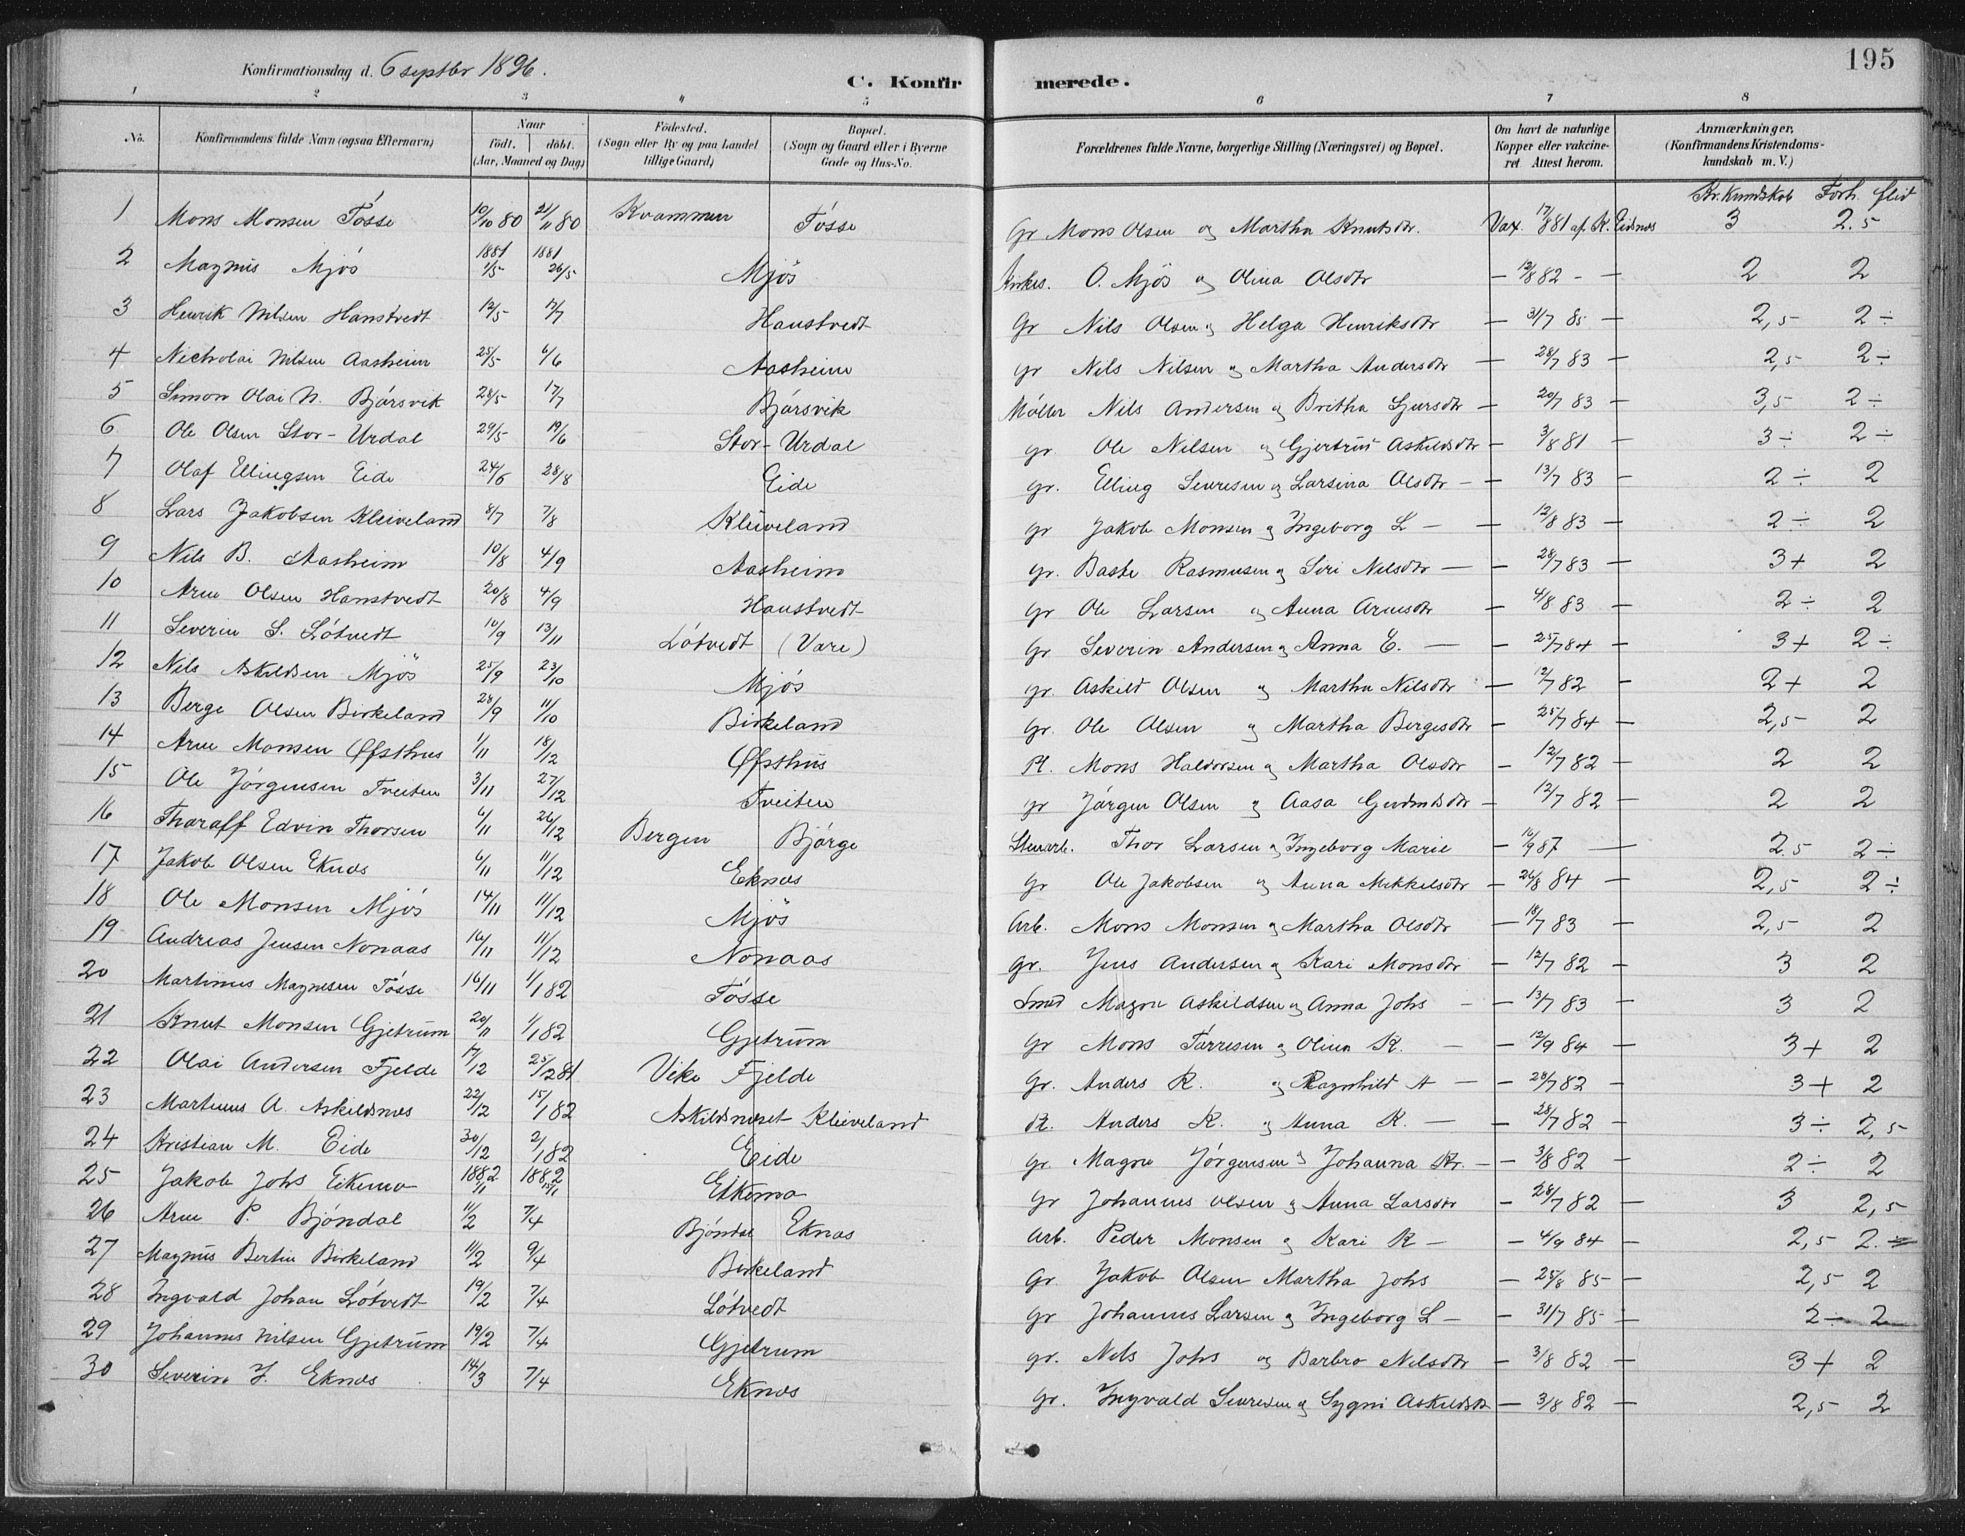 Konfirmationsdag d. 6 septbr 1896. C. Konfirmerede. 195
1 2 3 4 5 6 7 8
No. Konfirmandens fulde Navn (ogsaa Efternavn) Naar født. døbt. (Aar, Maaned og Dag) Fødested. (Sogn eller By og paa Landet tillige Gaard) Bopæl. (Sogn og Gaard eller i Byerne Gade og Hus-No. Forældrenes fulde Navne, borgerlige Stilling (Næringsvei) og Bopæl. Om havt de naturlige Kopper eller vakcineret. Attest herom. Anmærkninger, (Konfirmandens Kristendomskundskab m. V.)
Kr. Kundskab Forh. flid
1 Mons Monsen Tósse 10/10 80 21/11 80 Kvammen Tósse Gr Mons Olsen og Martha Knutsdr. Vax. 17/8 81 af K. Eidsnes 3 2.5
2 Magnus Mjós 1881 1/5 1881 26/5 Mjós Kirkes. O. Mjös og Olina Olsdtr — 12/8 82 — 2 2
3 Henrik Nilsen Hanstvedt 12/5 17/7 Hanstvedt Gr Nils Olsen og Helga Henriksdtr — 31/7 85 — 2,5 2 ÷
4 Nicholai Nilsen Aasheim 25/5 6/6 Aasheim gr Nils Nilsen og Martha Andersdtr — 28/7 83 — 2,5 2 ÷
5 Simon Olai N. Bjórsvik 28/5 17/7 Bjórsvik Móller Nils Andersen og Britha Sjursdtr — 20/7 83 — 3,5 2 ÷
6 Ole Olsen Stor-Urdal 29/5 19/6 Stor-Urdal gr Ole Nilsen og Gjertrud Askildsdtr — 3/8 81 — 3 ÷ 2 ÷
7 Olaf Ellingsen Eide 24/6 28/8 Eide gr. Elling Seversen og Larsina Olsdtr — 13/7 83 — 2 ÷ 2
8 Lars Jakobsen Kleiveland 8/7 7/8 Kleiveland gr Jakob Monsen og Ingeborg L — 12/8 83 — 2 ÷ 2
9 Nils B. Aasheim 10/8 4/9 Aasheim gr. Baste Rasmusen og Siri Nilsdtr — 28/7 83 — 3+ 2
10 Arne Olsen Hanstvedt 20/8 4/9 Hanstvedt gr Ole Larsen og Anna Arnesdtr — 4/8 83 — 2 ÷ 2
11 Severin S. Lótvedt 10/9 13/11 Lótvedt (Vare) Gr Severin Andersen og Anna E. — 25/7 84 — 3+ 2 ÷
12 Nils Askildsen Mjös 25/9 23/10 Mjós gr Askild Olsen og Martha Nilsdtr — 12/7 82 — 2+ 2
13 Berge Olsen Birkeland 28/9 11/10 Birkeland Gr. Ole Olsen og Martha Bergesdtr — 25/7 84 — 2,5 2
14 Arne Monsen Øfsthus 1/11 18/12 Øfsthus Pl. Mons Haldorsen og Martha Olsdtr — 12/7 82 — 2 2
15 Ole Jórgensen Tveiten 3/11 27/12 Tveiten gr Jórgen Olsen og Aasa — 12/7 82 — 2 2
16 Tharaff Edvin Thorsen 6/11 26/12 Bergen Bjórge Stenarb. Thor Larsen og Ingeborg Marie — 16/9 87 — 2.5 2 ÷
17 Jakob Olsen Eknes 6/11 11/12 Eknes Gr Ole Jakobsen og Anna Mikkelsdtr — 26/8 84 — 2,5 2 ÷
18 Ole Monsen Mjós 14/11 11/12 Mjós Arb. Mons Monsen og Martha Olsdtr — 18/7 83 2,5 2
19 Andreas Jensen Nonaas 16/11 11/12 Nonaas Gr. Jens Andersen og Kari Monsdtr — 12/7 82 — 3 2
20 Martinus Magnesen Tósse 16/11 1/1 82 Tósse Smed Magne Askildsen og Anna Johs — 13/7 83 — 3 2
21 Knut Monsen Gjetrum 20/11 1/1 82 Gjetrum Gr Mons Torresen og Olina K. — 12/9 84 — 3+ 2
22 Olai Andersen Fjelde 17/12 25/12 81 Vike Fjelde Gr. Anders K. og Ragnhild A — 28/7 82 — 3+ 2
23 Martinus A. Askildsnes 22/12 15/1 82 Askildsneset Kleiveland Pl. Anders K. og Anna K. — 28/7 82 — 3 ÷ 2,5
24 Kristian M. Eide 30/12 2/1 82 Eide gr. Magne Jórgensen og Johanna Kr. — 3/8 82 — 2 ÷ 2
25 Jakob Johs Eikemo 1882 1/1 1882 15/1 Eikemo Gr Johannes Olsen og Anna Larsdtr — 28/7 82 — 3 2,5
26 Arne P. Bjóndal 11/2 7/4 Bjóndal Eknes Arb. Peder Monsen og Kari K — 4/9 84 — 2,5 2.
27 Magnus Bertin Birkeland 11/2 9/4 Birkeland Gr Jakob Olsen Martha Johs — 25/8 85 — 2,5 2
28 Ingvald Johan Lótvedt 19/2 7/4 Lótvedt Gr Johannes Larsen og Ingeborg L — 31/7 85 — 2 ÷ 2
29 Johannes Nilsen Gjetrum 19/2 7/4 Gjetrum gr. Nils Johs og Barbro Nilsdtr — 3/8 82 — 3+ 2
30 Severin I. Eknes 14/3 7/4 Eknes Gr. Ingvald Seversen og Sygni Askildsdtr — 3/8 82 — 2,5 2